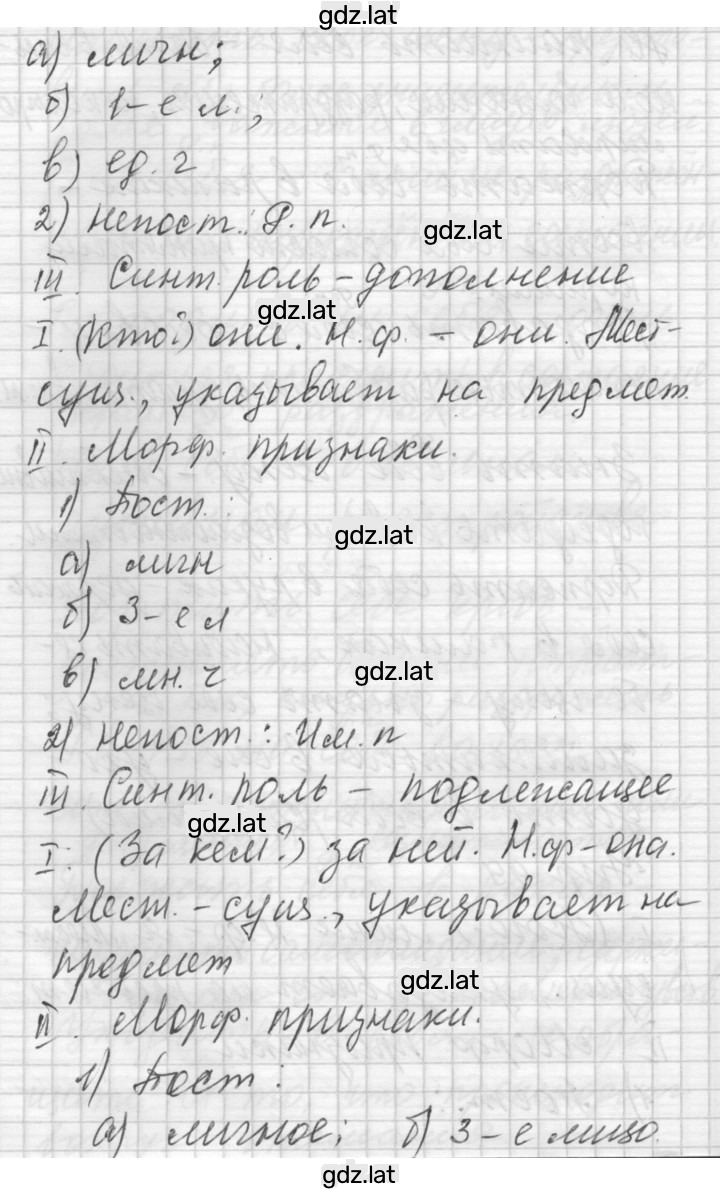 gdz.lat
а) личн;
б) 1-е л.;
в) ед. ч
2) Непост.: Р. п.
gdz.lat
III. Синт. роль - дополнение
gdz.lat
I. (Кто?) они. Н.ф. - они. Мест-
сущ., указывает на предмет.
II. Морф. признаки.
1) Пост. :
gdz.lat
а) личн
б) 3-е л
в) мн. ч
gdz.lat
2) Непост. : Им. п
III. Синт. роль - подлежащее
gdz.lat
I: (За кем?) за ней. Н.ф - она.
Мест. - сущ., указывает на
предмет
gdz.lat
II. Морф. признаки.
1) Пост :
а) личное; б) 3-е лицо.
gdz.lat